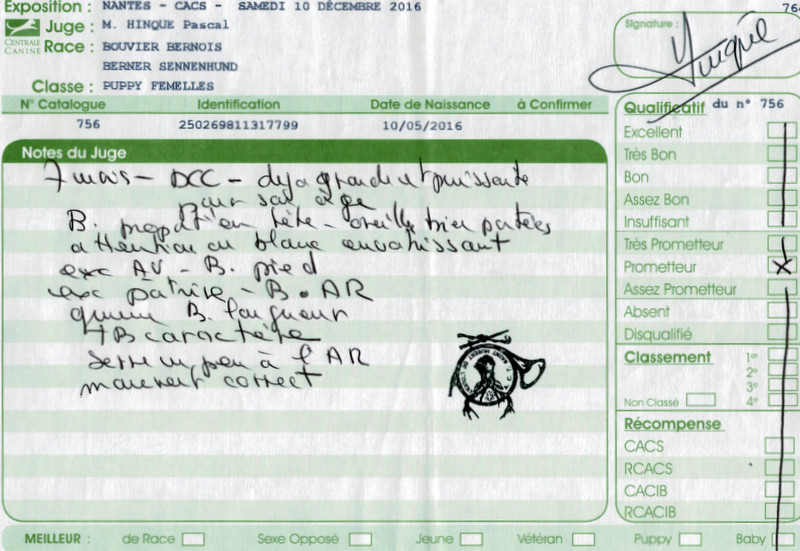 Exposition : NANTES - CACS - SAMEDI 10 DÉCEMBRE 2016
764
CENTRALE CANINE
Juge : M. HINQUE Pascal
Race : BOUVIER BERNOIS
BERNER SENNENHUND
Classe : PUPPY FEMELLES
Signature :
N° Catalogue Identification Date de Naissance à Confirmer
756 250269811317799 10/05/2016
Notes du Juge
7 mois - DCC - deja grande et puissante
pour son age
B. proport en tête - oreilles bien portées
attention au blanc envahissant
exc AV - B. pied
exc poitrine - B. AR
queue B. longueur
TB caractère
serre un peu à l'AR
mouvement correct
Qualificatif du n° 756
Excellent
Très Bon
Bon
Assez Bon
Insuffisant
Très Prometteur
Prometteur X
Assez Prometteur
Absent
Disqualifié
Classement 1er
2e
3e
Non Classé 4e
Récompense
CACS
RCACS
CACIB
RCACIB
MEILLEUR : de Race Sexe Opposé Jeune Vétéran Puppy Baby